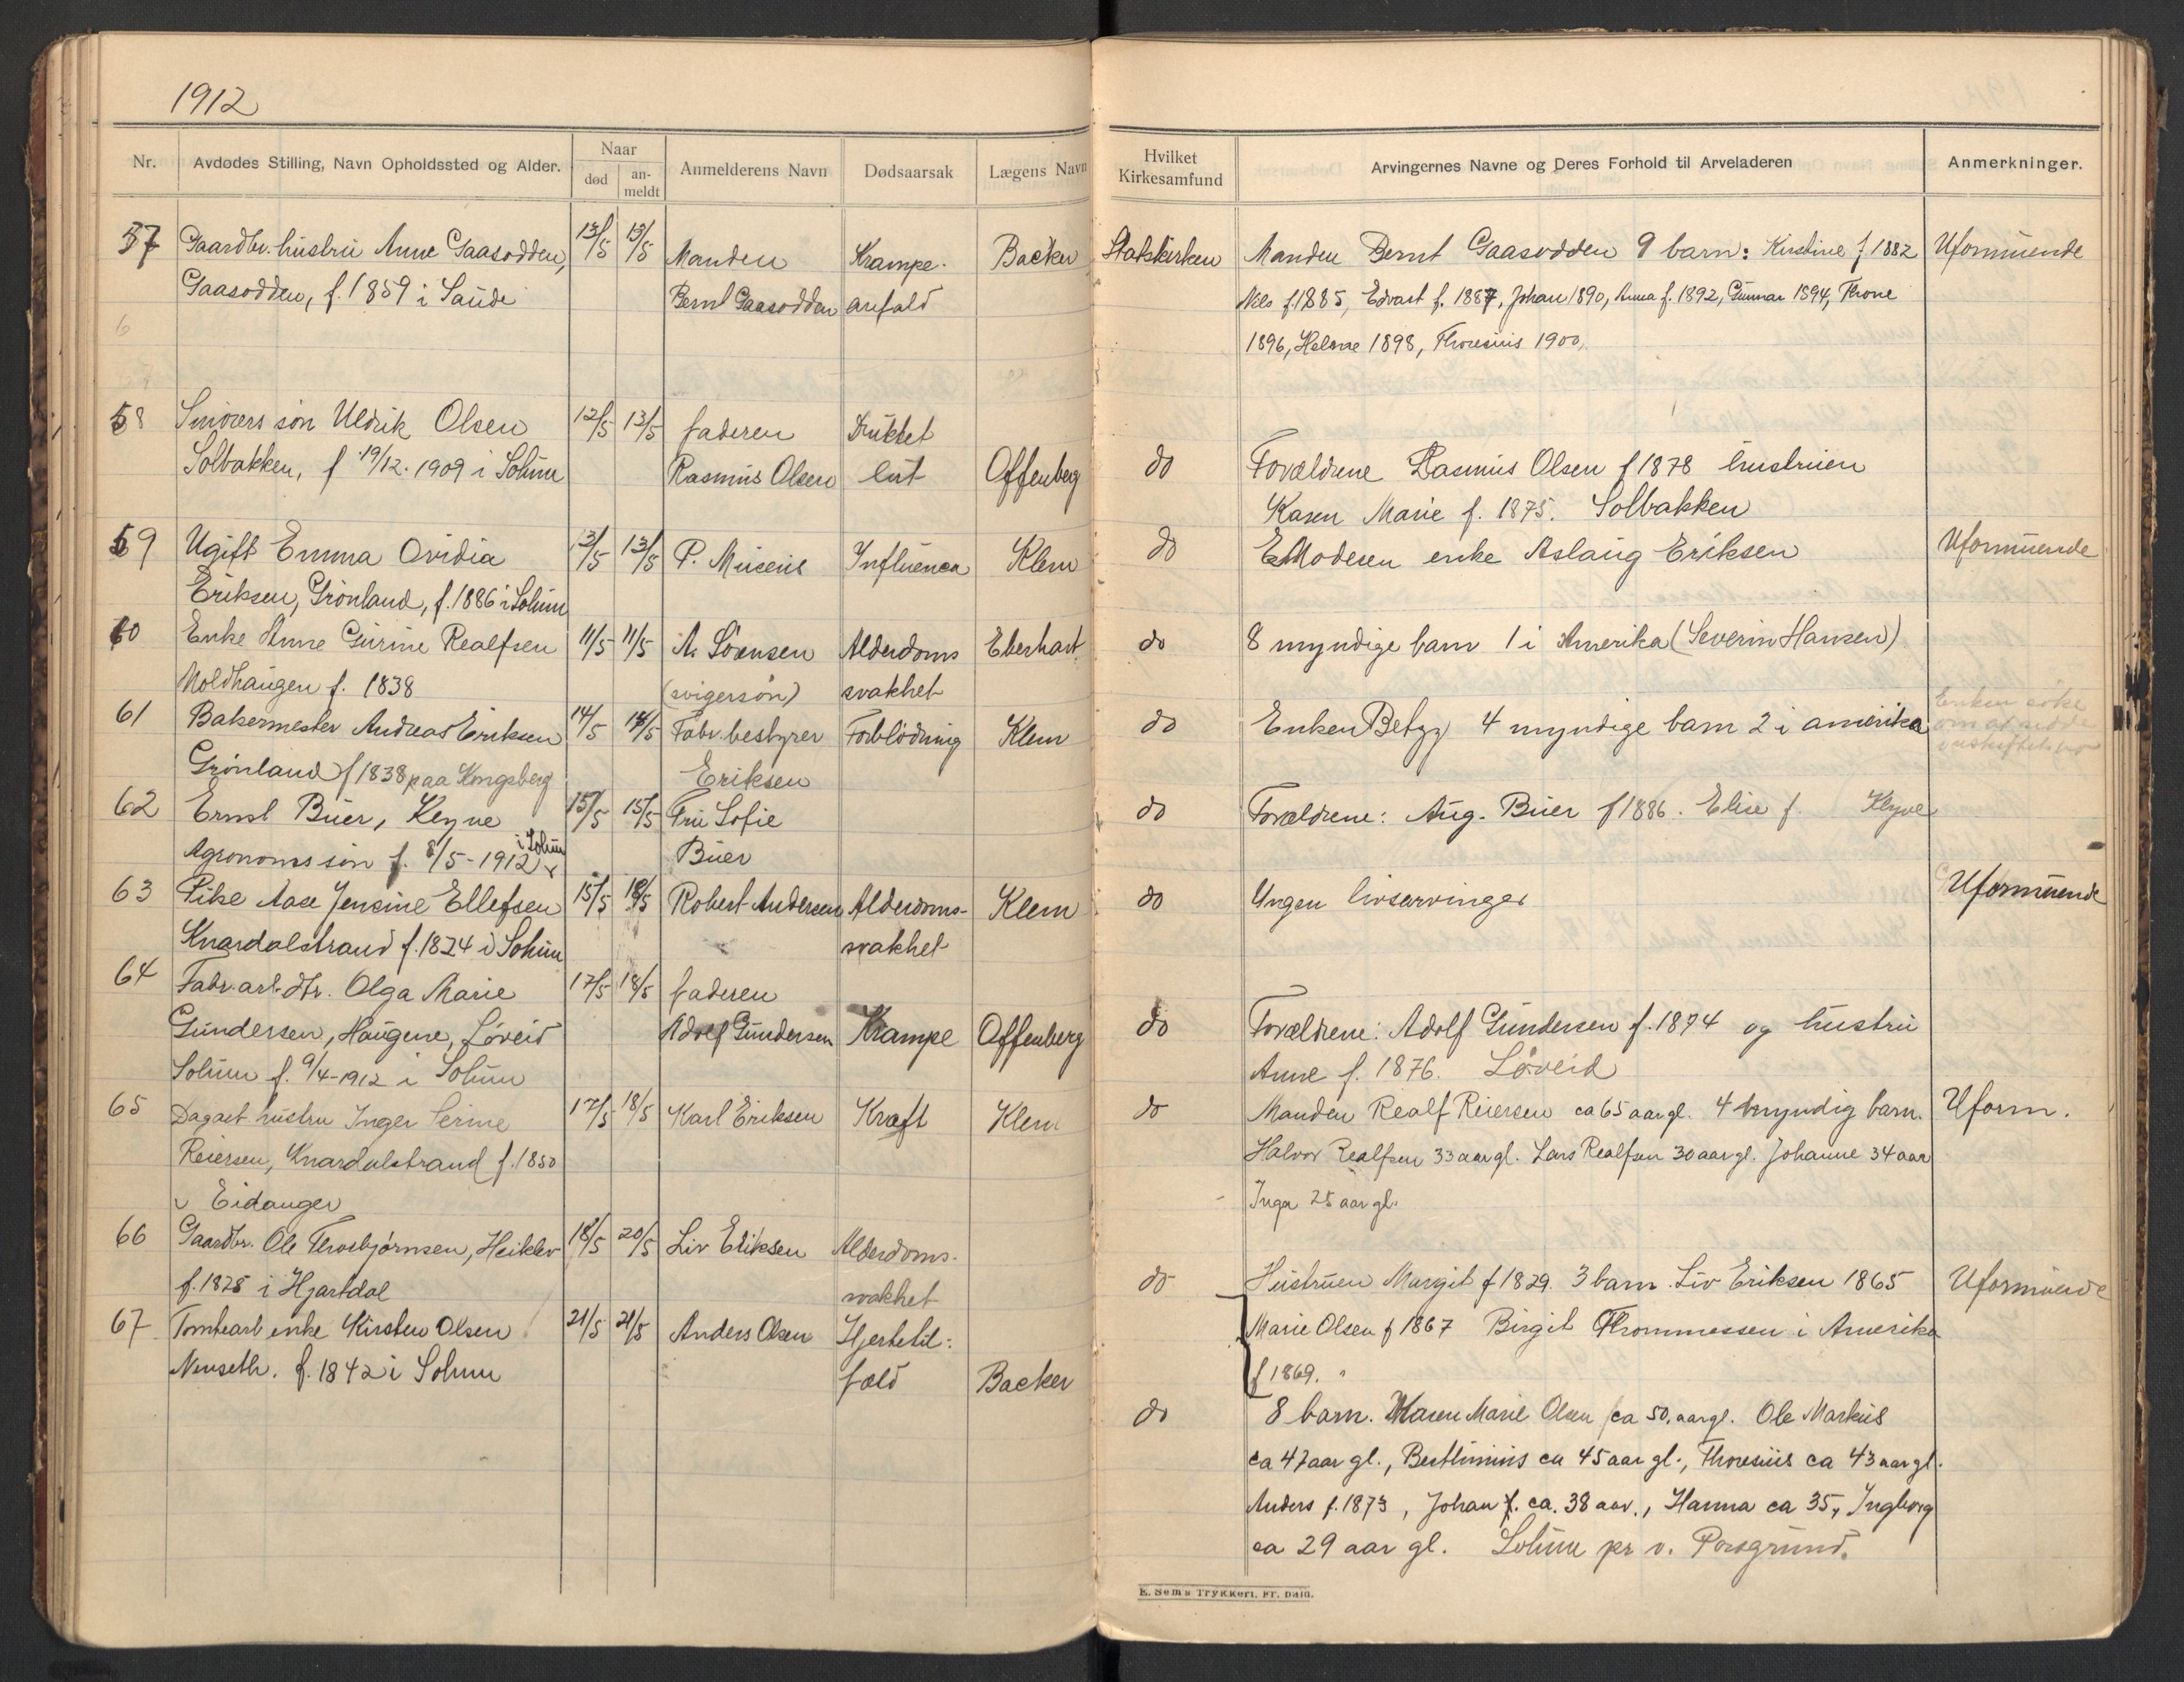 1912
Nr. Avdødes Stilling, Navn Opholdssted og Alder. Naar død an-meldt Anmelderens Navn Dødsaarsak Lægens Navn Hvilket Kirkesamfund Arvingernes Navne og Deres Forhold til Arveladeren Anmerkninger.
57 Gaardbr. hustru Anne Gaasodden, 13/5 13/5 Manden Krampe- Backer Statskirken Manden Bernt Gaasodden 9 barn: Kirstine f 1882 Uformuende
Gaasodden, f. 1859 i Saude Bernt Gaasodden anfald Nils f. 1885, Edvart f. 1887, Johan 1890, Anna f. 1892, Gunnar 1894, Thone
1896, 1898, Thoresius 1900,
58 søn Uldrik Olsen 12/5 13/5 faderen Druktet
Solbakken, f 19/12. 1909 i Solum Rasmus Olsen Offenberg do Forældrene Rasmus Olsen f 1878 hustruen
Karen Marie f. 1875. Solbakken
59 Ugift Emma Ovidia 13/5 13/5 P. Museus Influenca Klem do Moderen enke Aslaug Eriksen Uformuende
Eriksen, Grönland, f. 1886 i Solum
60 Enke Anne Gurine Realfsen 11/5 11/5 A. Sörensen Alderdoms Eberhart do 8 myndige barn 1 i Amerika (Severin Hansen)
Moldhaugen f. 1838 (svigersøn) svakhet
61 Bakermester Andreas Eriksen 14/5 14/5 Fabr. bestyrer Forblödning Klem do Enken Betzy 4 myndige barn 2 i amerika Enken søke
Grönland f 1838 paa Kongsberg Eriksen
62 Ernst Buer, Klyve 15/5 15/5 Fru Sofie do Forældrene: Aug. Buer f 1886. Elise f. Klyve
Agronoms søn f. 8/5-1912 i Solum Buer
63 Pike Aase Jensine Ellefsen 15/5 18/5 Robert Andersen Alderdoms- Klem do Ungen livsarvinger Uformuende
Knardalstrand f. 1824 i Solum svakhet
64 Fabr. arb. dtr. Olga Marie 17/5 18/5 faderen
Gundersen, Haugene, Löveid Adolf Gundersen Krampe Offenberg do Forældrene: Adolf Gundersen f. 1874 og hustru
Solum f. 9/4-1912 i Solum Anne f. 1876. Löveid
65 Dagarb. hustru Inger Serine 17/5 18/5 Karl Eriksen Kræft Klem do Manden Realf Reiersen ca 65 aar gl. 4 myndig barn. Uform.
Reiersen, Knardalstrand f. 1850 Halvor Realfsen 33 aar gl. Lars Realfsen 30 aar gl. Johanne 34 aar
i Eidanger Inga 25 aar gl.
66 Gaardbr. Ole Thorbjørnsen, Heiklev 18/5 20/5 Liv Eriksen Alderdoms- do Hustruen Margit f 1829. 3 barn. Liv Eriksen 1865 Uformuende
f. 1828 i Hjartdal svakhet Marie Olsen f 1867 Birgit Thommessen i Amerika
f 1869.
67 Tomtearb enke Kirsten Olsen 21/5 21/5 Anders Olsen Hjertetil-
Nenseth. f. 1842 i Solum fæld Backer do 8 barn. Karen Marie Olsen ca 50, aar gl. Ole Markus
ca 47 aar gl., Berthinius ca 45 aar gl., Thoresius ca 43 aar gl.
Anders f. 1873, Johan f. ca. 38 aar., Hanna ca 35, Ingborg
ca 29 aar gl. Solum pr v. Porsgrund.
E. Sem's Trykkeri, Fr. hald.